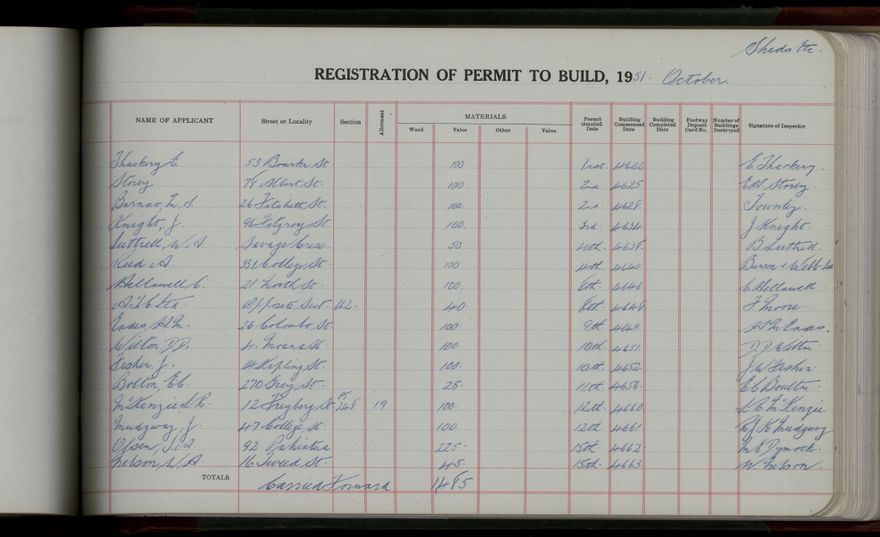 Sheds Etc.
REGISTRATION OF PERMIT TO BUILD, 1951. October.
NAME OF APPLICANT Street or Locality Section Allotment MATERIALS Permit Granted Date Building Commenced Date Building Completed Date Footway Deposit Card No. Number of Buildings Destroyed Signature of Inspector
Wood Value Other Value
Thackery E 53 Bourke St 100 1st 4622 E Thackery.
Storey 78 Albert St. 100. 2nd 4625 Storey.
26 Fitchett St. 100. 2nd 4628 Townley.
Knight, J. 96 Fitzroy St. 100. 3rd 4634 J Knight.
Luttrell, W.A. Savage Cresc. 50 4th 4638. B Luttrell.
Reid A. 331 College St. 100 4th 4640.
Hellawell C. 21 North St. 100 8th 4646 C Hellawell
Opposite Sect. 40. 8th 4648. F. Moore.
Eades H.M. 26 Colombo St. 100 9th 4649. H.M. Eades.
Wilton D.D. 4. Moana St. 100 10th 4651. D.D. Wilton
Fisher J. 14 Kipling St. 100. 10th 4652. J.W. Fisher.
Bolton, E.C. 270 Grey St. 25. 11th 4656. E C Boulton
McKenzie 12 Freyberg St. 248 19 100. 12th 4660 McKenzie
Mudgway J. 47 College St. 100 12th 4661 Mudgway
Olsen, 92 Pahiatua 225. 15th 4662. Dymock.
Nelson, W.A. 16 Tweed St. 45. 15th 4663. W Nelson.
TOTALS Carried Forward 1485